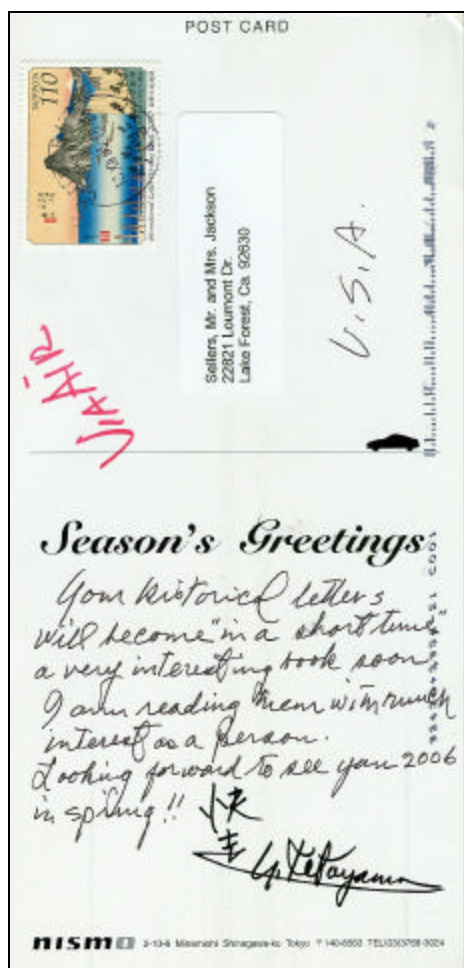 POST CARD
NIPPON 110
Sellers, Mr. and Mrs. Jackson
22821 Loumont Dr.
Lake Forest, Ca 92630
U.S.A.
VIA AIR
Season's Greetings
Your historical letters
will become "in a short time"
a very interesting book soon
I am reading them with much
interest as a person.
Looking forward to see you 2006
in spring!!
nismo 2-10-6 Minamiohi Shinagawa-ku Tokyo 〒140-8502 TEL(03)3768-3024